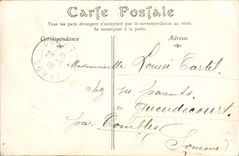 Carte Postale
Tous les pays étrangers n'acceptent pas la correspondance au recto.
Se renseigner à la poste.
Correspondance
Adresse
Mademoiselle Louise Cartel
chez ses parents
à Gueudecourt
par Combles
(Somme)